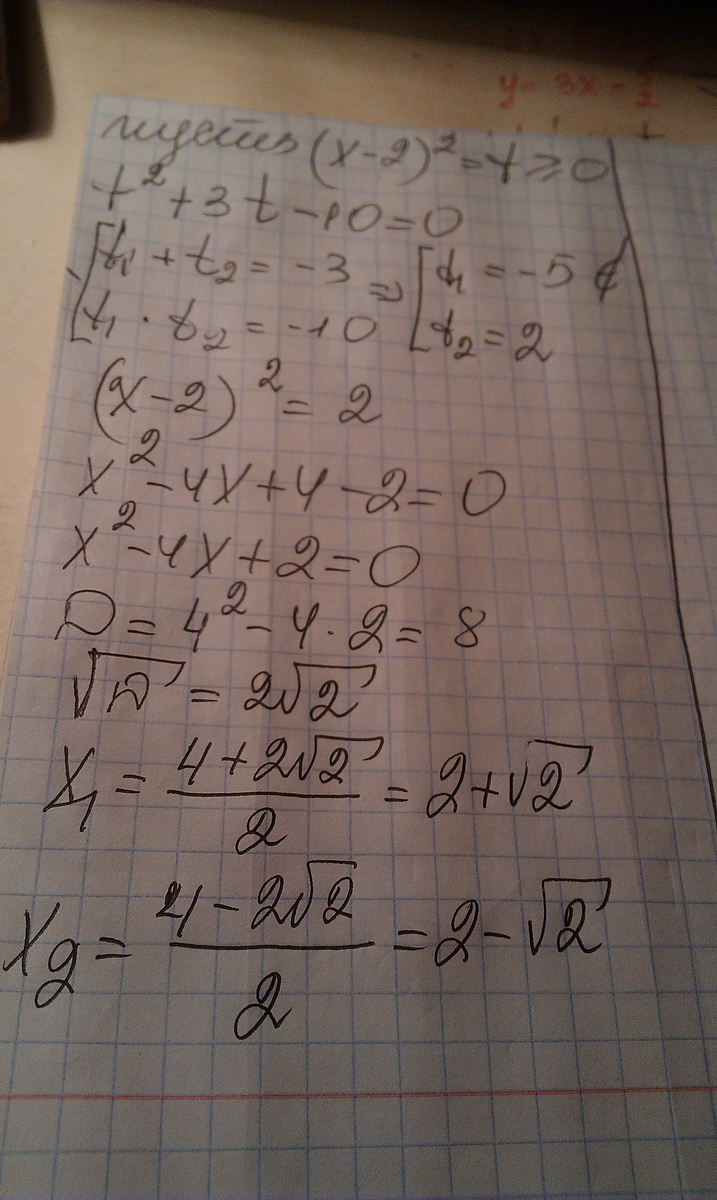 y= 3x - 
пусть (x-2)²=t≥0
t²+3t-10=0
[t₁+t₂=-3 ⇒ [t₁=-5 ∉
[t₁·t₂=-10 [t₂=2
(x-2)²=2
x²-4x+4-2=0
x²-4x+2=0
D=4²-4·2=8
√D=2√2
x₁=(4+2√2)/2=2+√2
x₂=(4-2√2)/2=2-√2